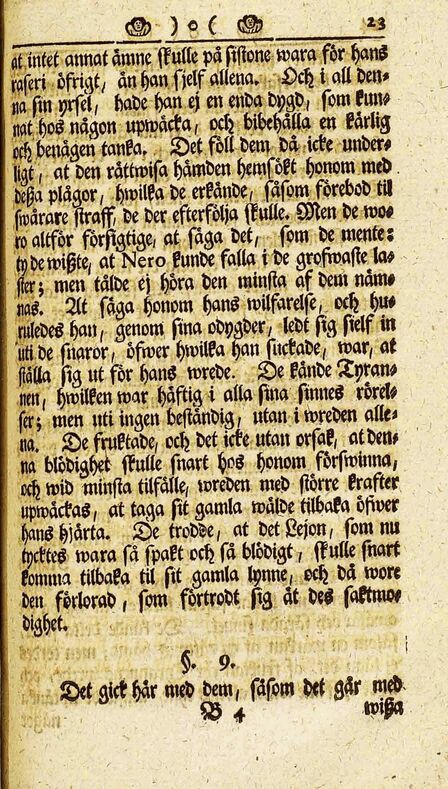 ) o ( 23
at intet annat ämne skulle på sistone wara för hans
raseri öfrigt, än han sjelf allena. Och i all den-
na sin yrsel, hade han ej en enda dygd, som kun-
nat hos någon upwäcka, och bibehålla en kärlig
och benägen tanka. Det föll dem då icke under-
ligt, at den rättwisa hämden hemsökt honom med
deßa plågor, hwilka de erkände, såsom förebod til
swårare straff, de der efterfölja skulle. Men de wo-
ro altför försigtige, at säga det, som de mente:
ty de wißte, at Nero kunde falla i de grofwaste la-
ster; men tålde ej höra den minsta af dem näm-
nas. At säga honom hans wilfarelse, och hu-
ruledes han, genom sina odygder, ledt sig sielf in
uti de snaror, öfwer hwilka han suckade, war, at
ställa sig ut för hans wrede. De kände Tyran-
nen, hwilken war häftig i alla sina sinnes rörel-
ser; men uti ingen beständig, utan i wreden alle-
na. De fruktade, och det icke utan orsak, at den-
na blödighet skulle snart hos honom förswinna,
och wid minsta tilfälle, wreden med större krafter
upwäckas, at taga sit gamla wälde tilbaka öfwer
hans hjärta. De trodde, at det Lejon, som nu
tycktes wara så spakt och så blödigt, skulle snart
komma tilbaka til sit gamla lynne, och då wore
den förlorad, som förtrodt sig åt des saktmo-
dighet.
§. 9.
Det gick här med dem, såsom det går med
B 4 wißa